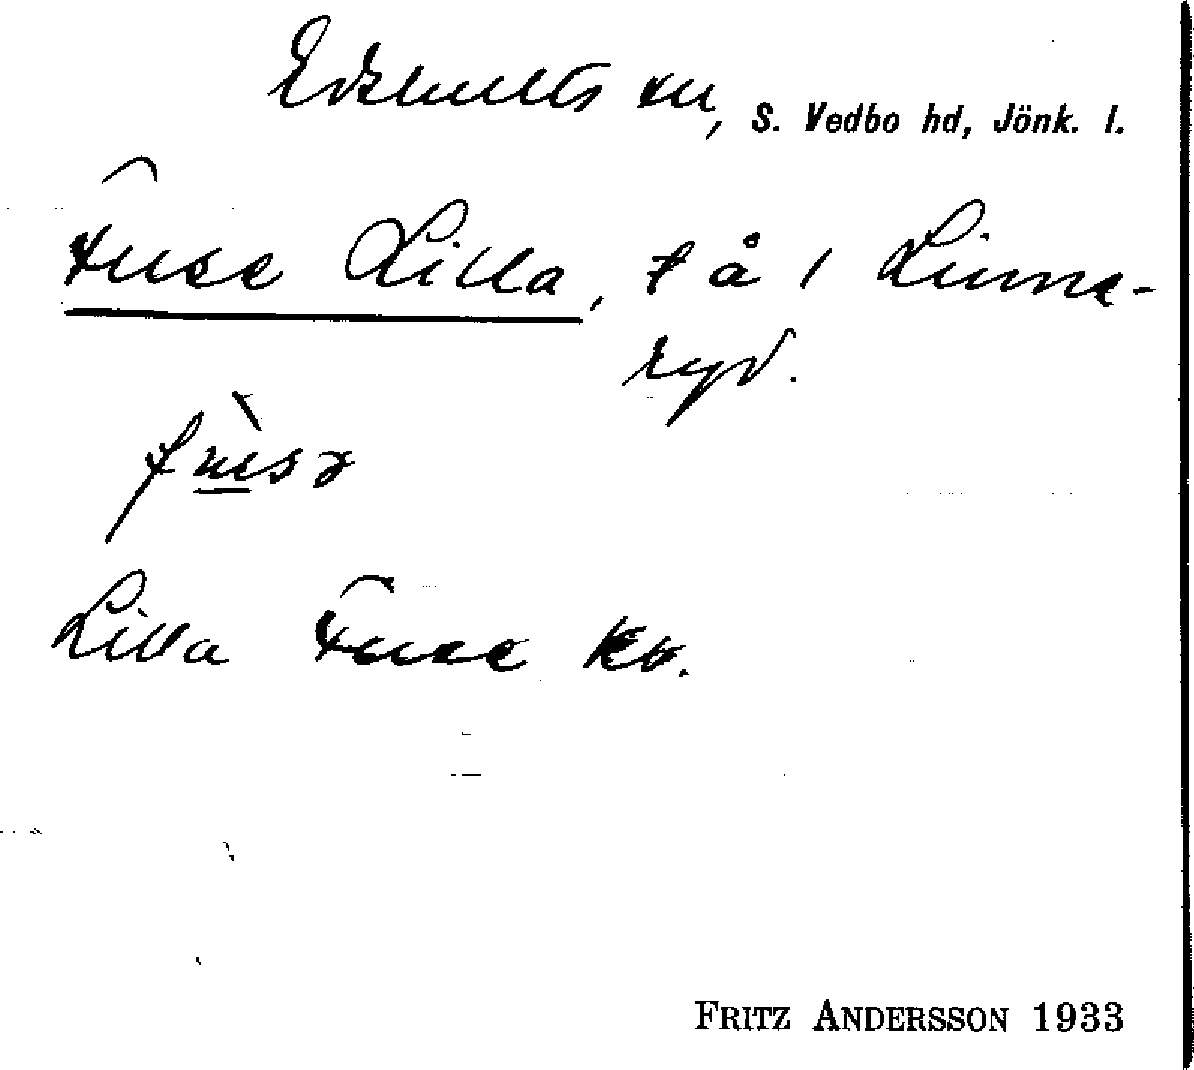 Edshults sn, S. Vedbo hd, Jönk. l.
Fuse Lilla, t å 1 Linne-
ryd.
Lilla Fuse kv.
FRITZ ANDERSSON 1933